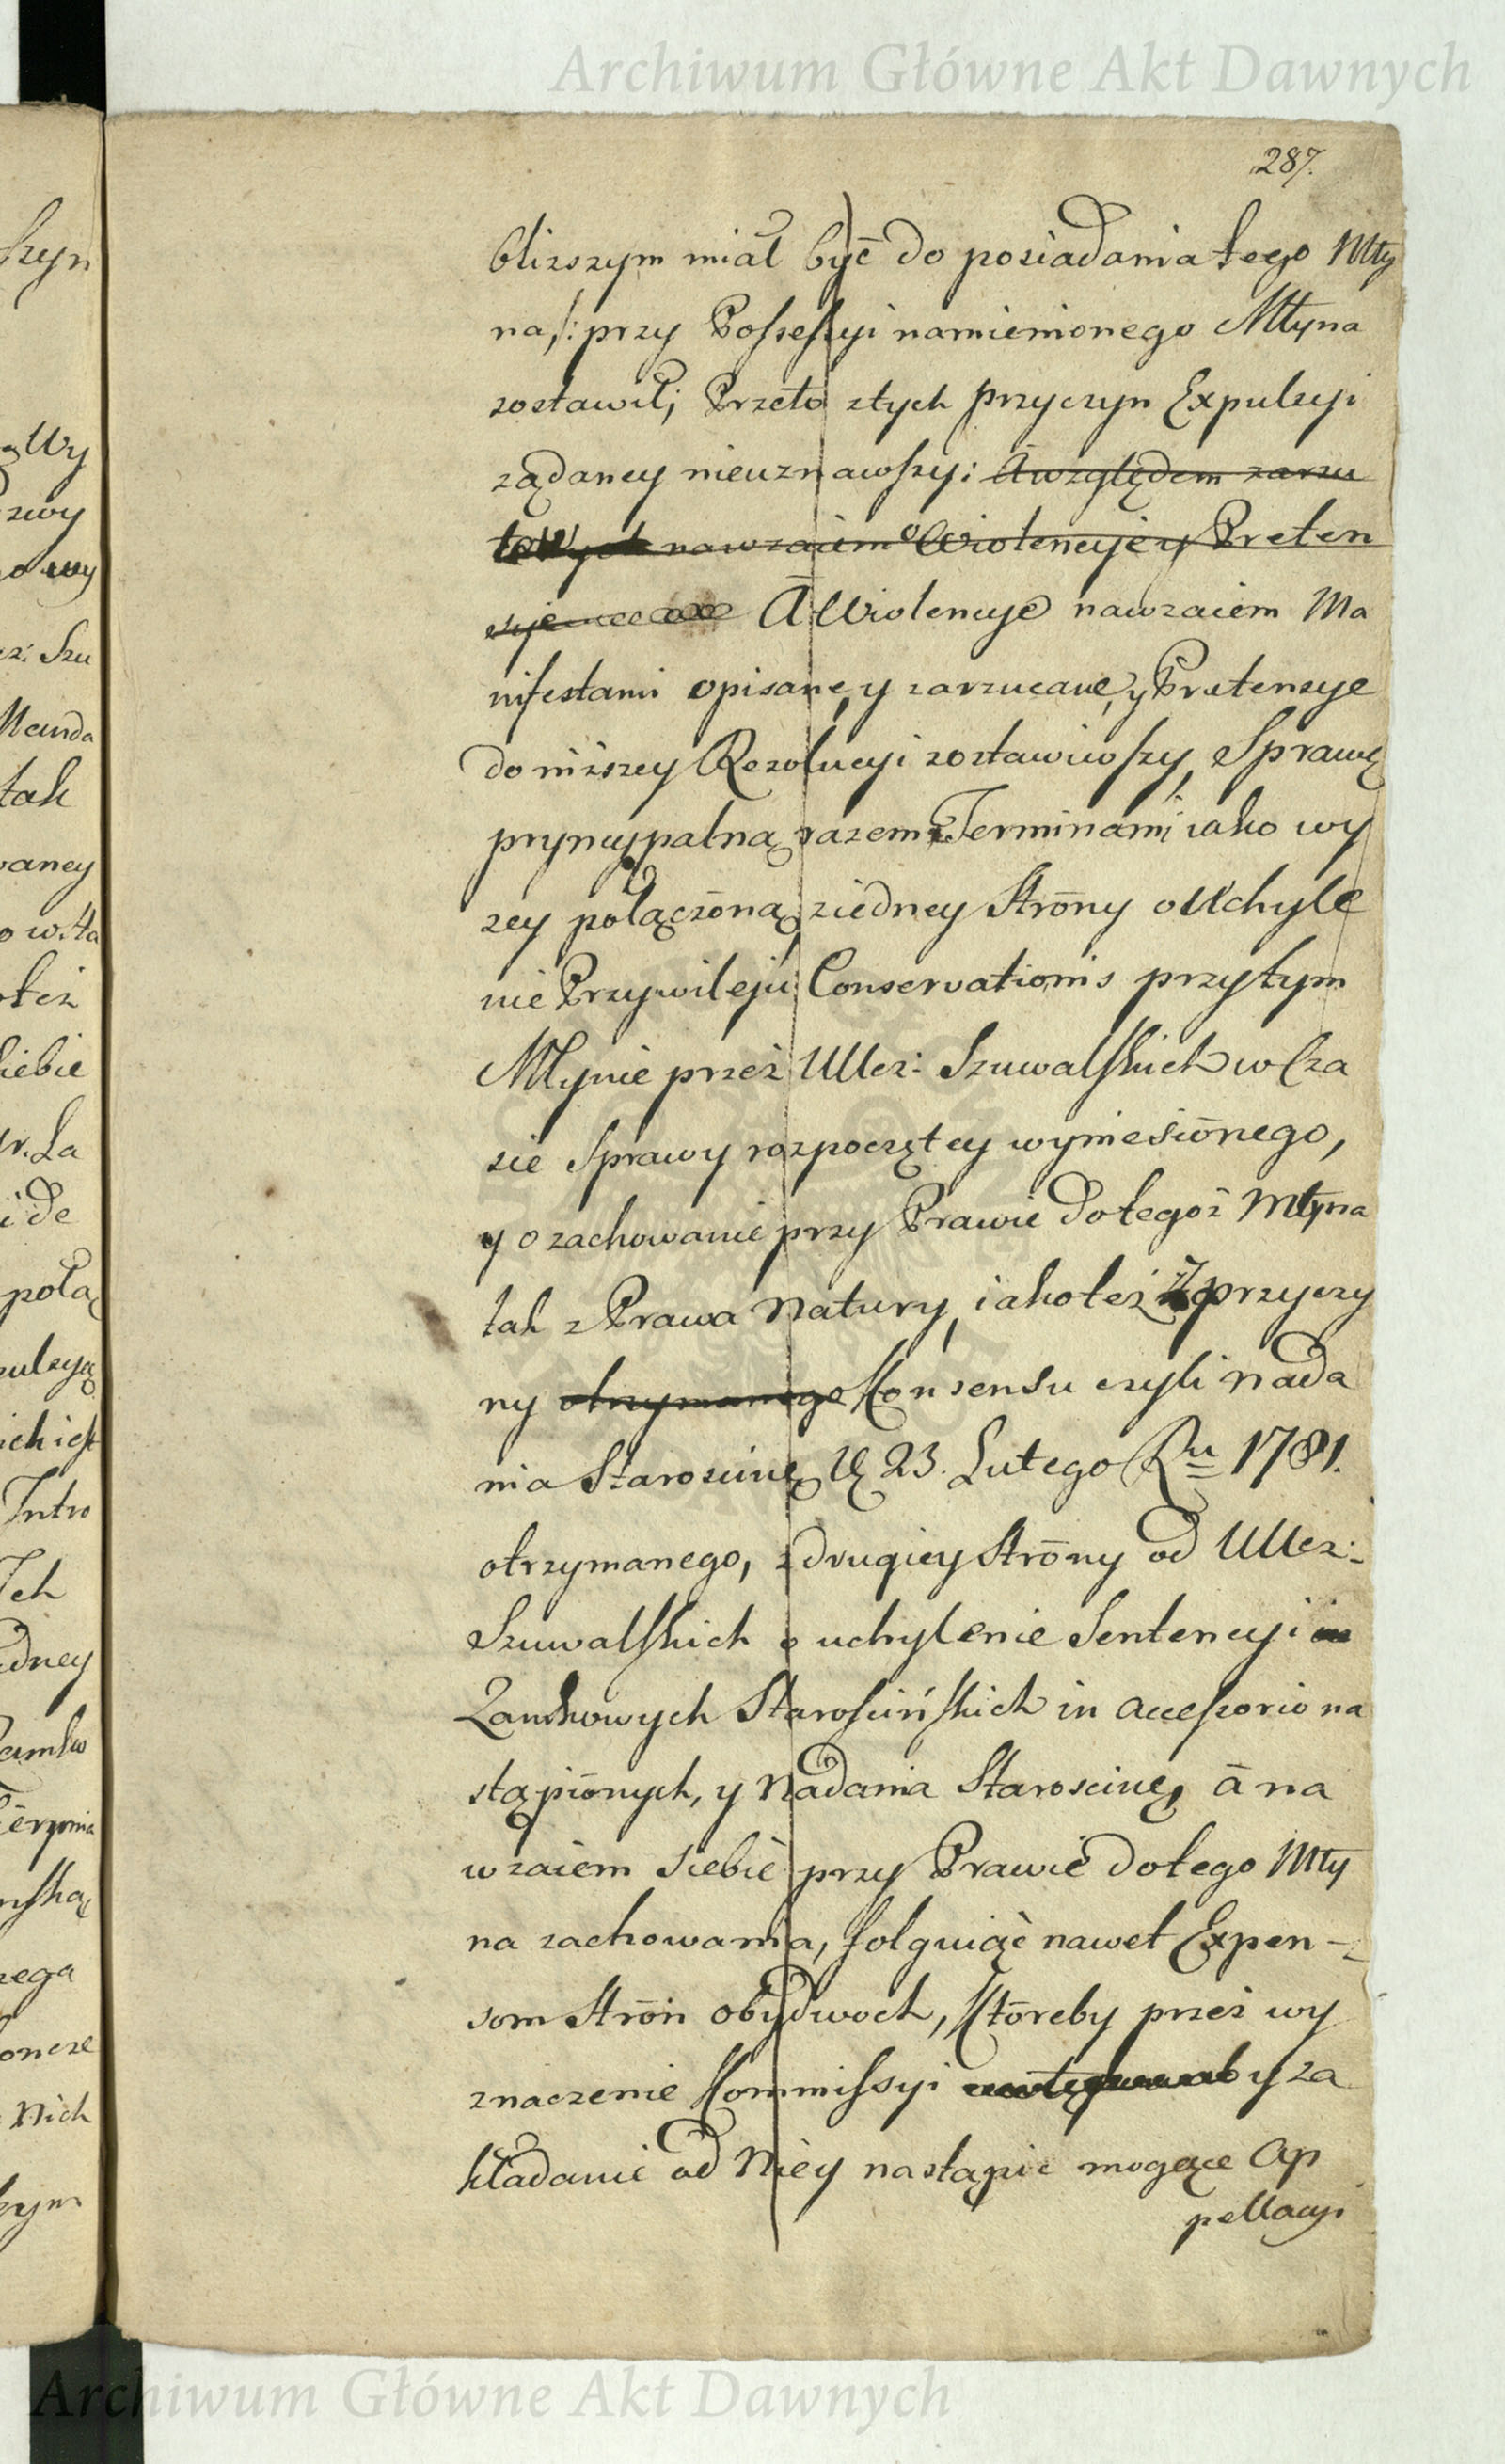 Archiwum Główne Akt Dawnych
287.
bliższym miał być do posiadania tego Mły
na/: przy Possessyi namienionego Młyna
zostawił; Przeto z tych przyczyn Expulsyi
żądaney nieuznawszy: A względem zarzu
nawzaiem o Wiolencyje y Preten
sye A Wiolencye nawzaiem Ma
nifestami opisane, y zarzucane, y Pretensye
do niższey Rezolucyi zostawiwszy, Sprawę
pryncypalną razem z Terminami iako wy
żey połączoną, z iedney Strōny o Uchyle
nie Przywileju Conservationis przy tym
Młynie przez UUrz: Szuwalskich w Cza
sie Sprawy rozpoczętey wyniesiōnego,
y o zachowanie przy Prawie do tegoż Młyna
tak z Prawa Natury, iako też z przyczy
ny otrzymanego Konsensu czyli Nada
nia Staroscinę 23. Lutego Ru 1781.
otrzymanego, z drugiey Strōny od UUrz:
Szuwalskich o uchylenie Sentencyi
Zamkowych Starościńskich in accessorio na
stąpiōnych, y Nadania Starościnę, ā na
wzaiem siebie przy Prawie do tego Mły
na zachowania, folguiąc nawet Expen-
som Strōn obydwoch, Ktōreby przez wy
znaczenie Kommissyi y za
kładanie od Niey nastąpić mogące Ap
pellacyi
szyn
Wy
zwy
o wy
Szu
Manda
tak
waney
o w.Ha
też
siebie
r. La
i de
połą
pulsyą
ich iest
Intro
Ich
edney
Zamko
nską
nego
oncze
Nich
Archiwum Główne Akt Dawnych